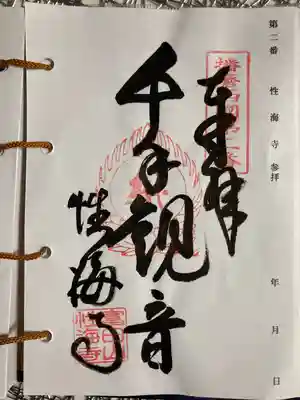 第二番 性海寺参拝 年 月 日
奉拝
千手観音
性海寺
性海寺